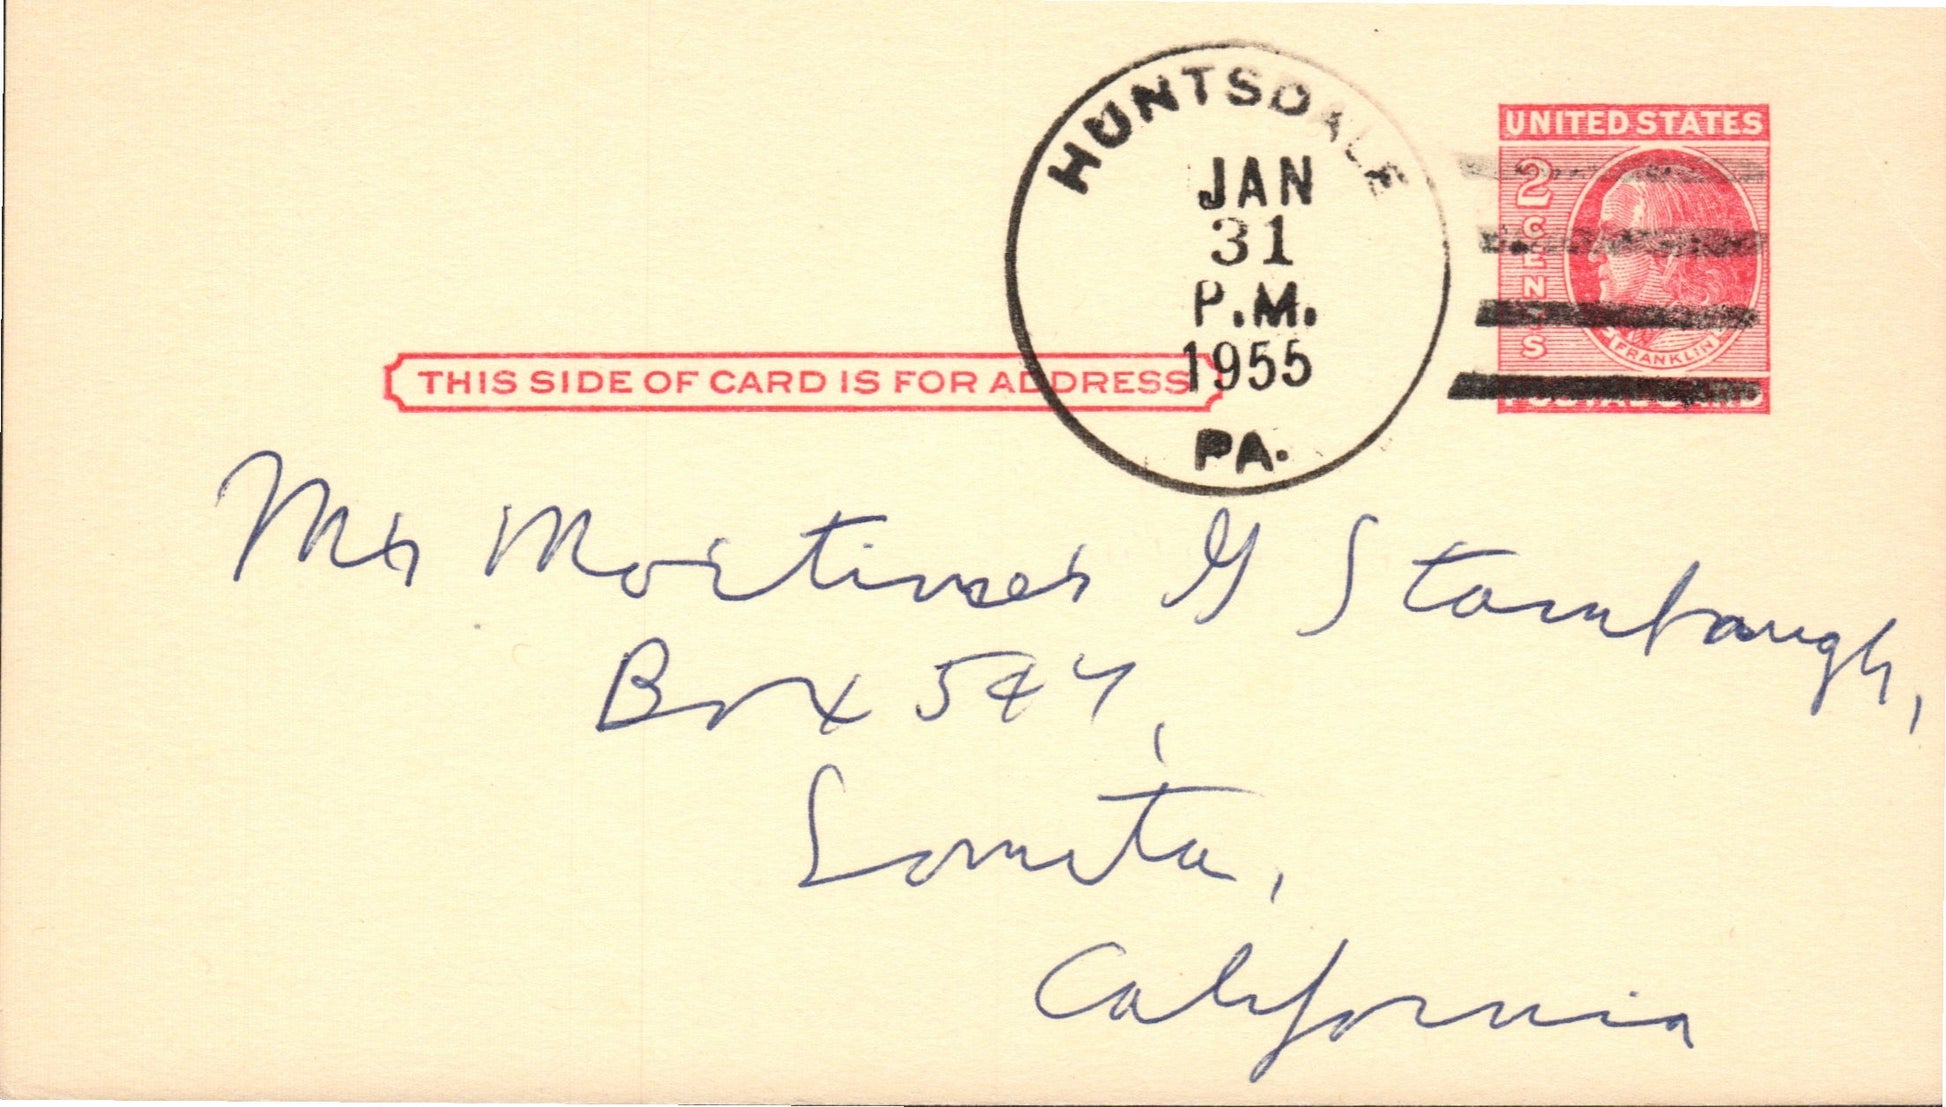 HUNTSDALE
JAN
31
P.M.
1955
PA.
UNITED STATES
2 CENTS
FRANKLIN
POSTAL CARD
THIS SIDE OF CARD IS FOR ADDRESS
Mr Mortimer G Stambaugh,
Box 547,
Lomita,
California